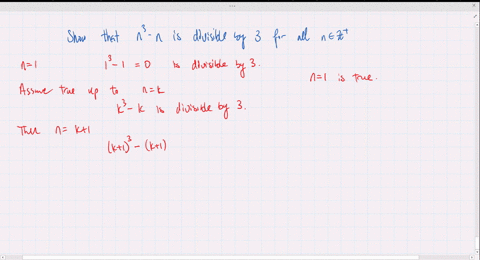 Show that n³-n is divisible by 3 for all n∈ℤ⁺
n=1 1³-1 = 0 is divisible by 3.
n=1 is true.
Assume true up to n=k
k³-k is divisible by 3.
Then n= k+1
(k+1)³ - (k+1)